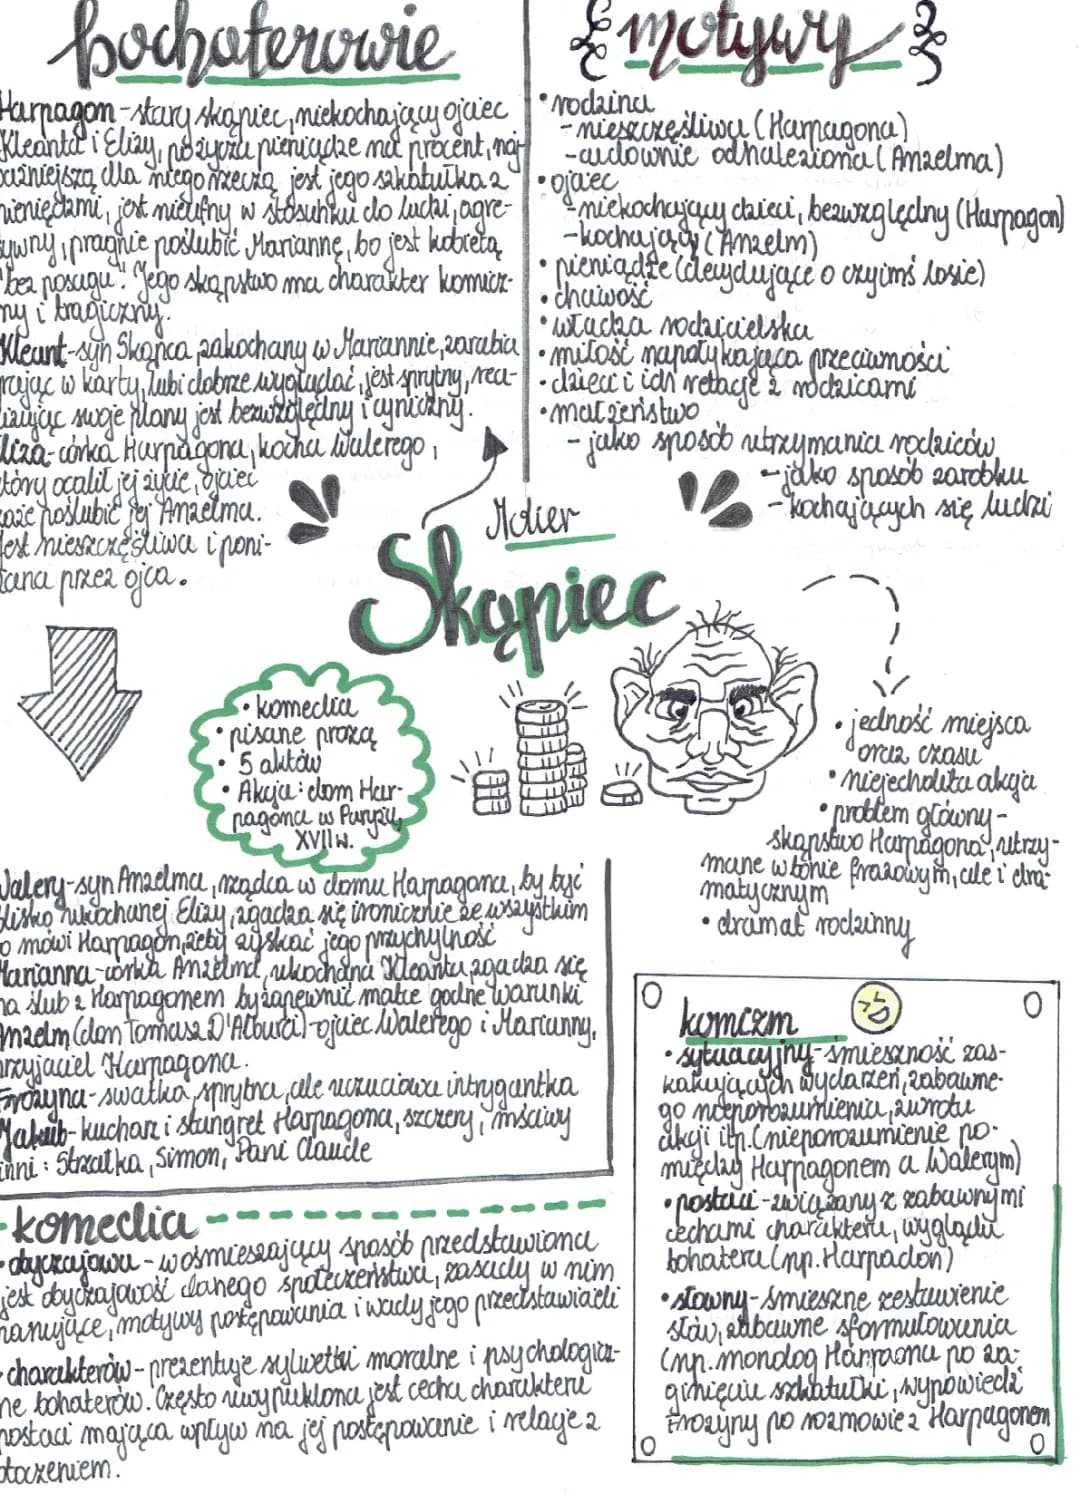 bochaterowie
Harpagon - stary skąpiec, niekochający ojciec
Kleanta i Elizy, pożycza pieniądze na procent, naj-
ważniejszą dla niego rzeczą jest jego szkatułka z
pieniędzmi, jest nieufny w stosunku do ludzi, agre-
sywny, pragnie poślubić Mariannę, bo jest kobietą
"bez posagu". Jego skąpstwo ma charakter komicz-
ny i tragiczny.
Kleant - syn Skąpca, zakochany w Mariannie, zarabia
grając w karty, lubi dobrze wyglądać, jest sprytny, rea-
lizując swoje plany jest bezwzględny i cyniczny.
Eliza - córka Harpagona, kocha Walerego,
który ocalił jej życie, ojciec
każe poślubić jej Anzelma.
Jest nieszczęśliwa i poni-
żana przez ojca.
motywy
• rodzina
- nieszczęśliwa (Harpagona)
- cudownie odnaleziona (Anzelma)
• ojciec
- niekochający dzieci, bezwzględny (Harpagon)
- kochający (Anzelm)
• pieniądze (decydujące o czyimś losie)
• chciwość
• władza rodzicielska
• miłość napotykająca przeciwności
• dzieci i ich relacje z rodzicami
• małżeństwo
- jako sposób utrzymania rodziców
- jako sposób zarobku
- kochających się ludzi
Molier
Skąpiec
• komedia
• pisane prozą
• 5 aktów
• Akcja: dom Har-
pagona w Paryżu,
XVII w.
• jedność miejsca
oraz czasu
• niejednolita akcja
• problem główny -
skąpstwo Harpagona, utrzy-
mane w tonie frazowym, ale i dra-
matycznym
• dramat rodzinny
Walery - syn Anzelma, rządca w domu Harpagona, by być
blisko ukochanej Elizy, zgadza się ironicznie ze wszystkim
co mówi Harpagon, żeby zyskać jego przychylność
Marianna - córka Anzelma, ukochana Kleanta, zgadza się
na ślub z Harpagonem by zapewnić matce godne warunki
Anzelm (don Tomasz D'Alburci) - ojciec Walerego i Marianny,
przyjaciel Harpagona.
Frozyna - swatka, sprytna, ale uczuciowa intrygantka
Jakub - kucharz i stangret Harpagona, szczery, mściwy
inni: Strzałka, Simon, Pani Claude
- komedia
• obyczajowa - w ośmieszający sposób przedstawiona
jest obyczajowość danego społeczeństwa, zasady w nim
panujące, motywy postępowania i wady jego przedstawicieli
• charakterów - prezentuje sylwetki moralne i psychologicz-
ne bohaterów. Często uwypuklona jest cecha charakteru
postaci mająca wpływ na jej postępowanie i relacje z
otoczeniem.
komizm
• sytuacyjny - śmieszność zas-
kakujących wydarzeń, zabawne-
go nieporozumienia, zwrotu
akcji itp. (nieporozumienie po-
między Harpagonem a Walerym)
• postaci - związany z zabawnymi
cechami charakteru, wyglądu
bohatera (np. Harpadon)
• słowny - śmieszne zestawienie
słów, zabawne sformułowania
(np. monolog Harpaona po za-
ginięciu szkatułki, wypowiedź
Frozyny po rozmowie z Harpagonem